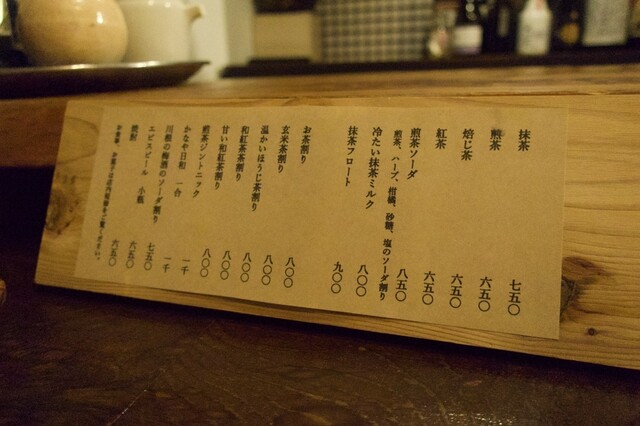 抹茶 七五〇
煎茶 六五〇
焙じ茶 六五〇
紅茶 六五〇
煎茶ソーダ 八五〇
煎茶、ハーブ、柑橘、砂糖、塩のソーダ割り
冷たい抹茶ミルク 八〇〇
抹茶フロート 九〇〇
お茶割り
玄米茶割り 八〇〇
温かいほうじ茶割り 八〇〇
和紅茶茶割り 八〇〇
甘い和紅茶割り 八〇〇
煎茶ジントニック 八〇〇
かなや日和 一合 一千
川根の梅酒のソーダ割り 一千
ヱビスビール 小瓶 七五〇
焼酎 六五〇
六五〇